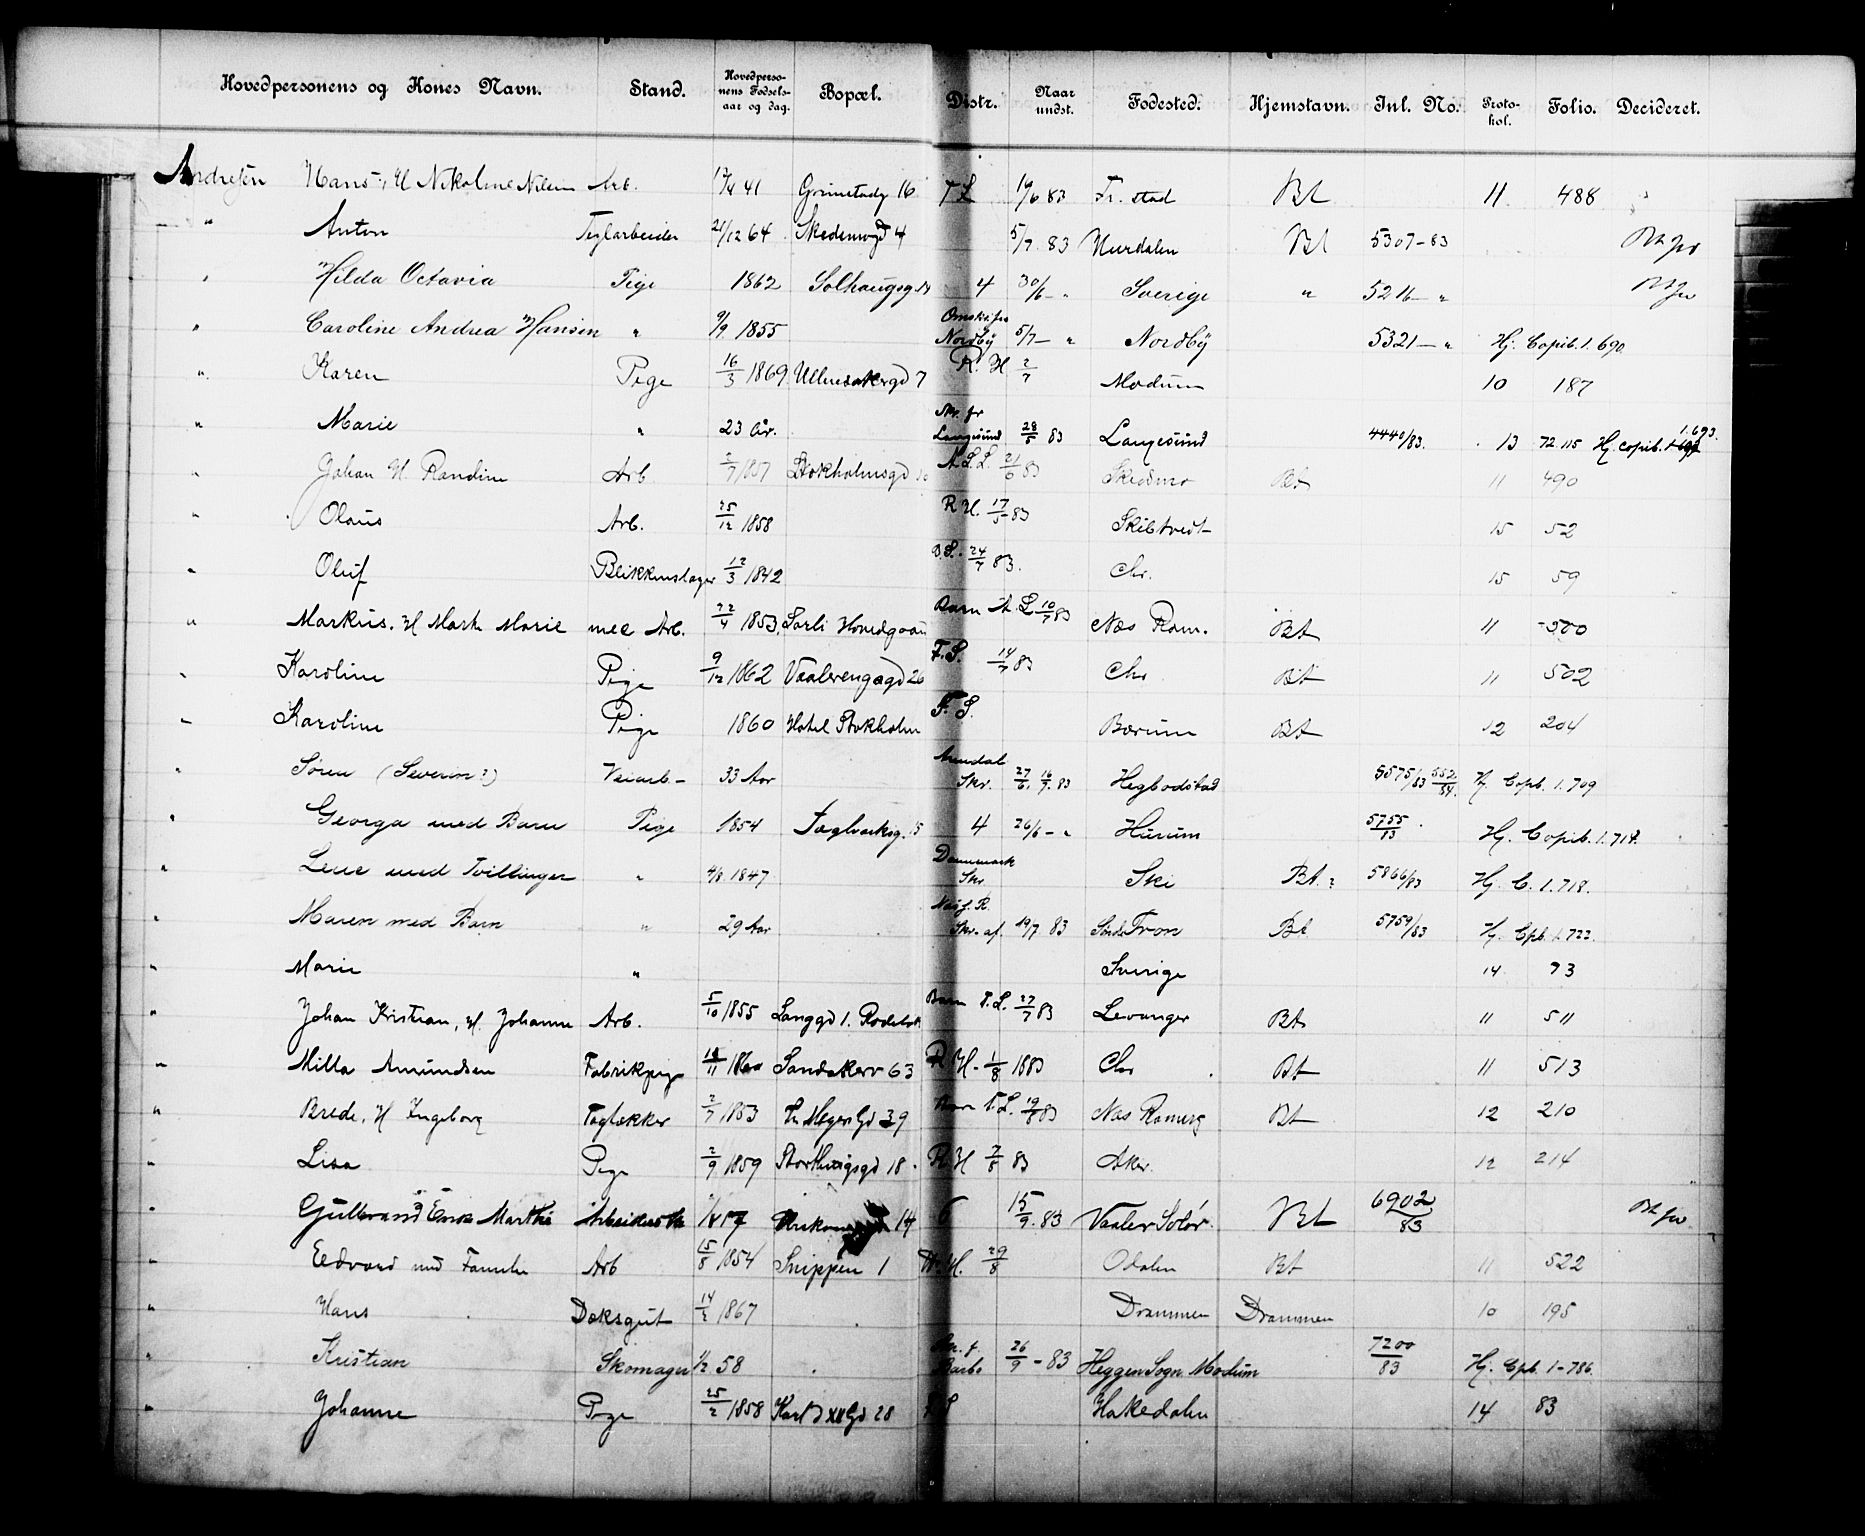 Hovedpersonens og Kones Navn. Stand. Hovedpersonens Fødselsaar og dag. Bopæl. Distr. Naar undst. Fødested. Hjemstavn. Inl. No. Protokol. Folio. Decideret.
Andresen Hans, H Nikoline Nilsen Arb. 41 Grimstadg 16 T L 83 Fr. stad Bt 11 488
" Anton Teglarbeider 21/12 64 4 5/7 83 Hurdalen Bt 5307-83
" Hilda Octavia Pige 1862 Solhaugsg 4 30/6 - " Sverige " 5216 - "
" Caroline Andrea Hansen " 9/9 1855 Nordby 5/7 - " Nordby 5321 - " Hj. Copib. 1. 690
" Karen Pige 16/3 1869 Ullensakergd 7 R. H 2/7 Modum 10 187
" Marie " 23 Aar. Skr. fr Langesund 28/5 83 Langesund 4440/83. 13 72.115 Hj. Copib. 1.693.
" Johan H Randine Arb 2/7 1857 Stokholmsgd A.S.L. 21/6 83 Skedsmo Bt 11 490
" Olaus Arb. 25/12 1858 R H. 17/5 83 Skibtvedt 15 52
" Oluf Blikkenslager 12/3 1842 24/7 83. Chr. 15 59
" Markus. H Marte Marie med Arb. 1853. Sorli Hovedgaard Barn A L 10/7 83 Næs Rom. Bt 11 500
" Karoline Pige 9/12 1862 Vaalerengagd 26 F. S. 14/7 83 Chr Bt 11 502
" Karoline Pige 1860 Hotel Stokholm F. S. Bærum Bt 12 204
" Søren (Severin?) Veiarb - 33 Aar Arendal Skr. 27/6. 16/7. 83 Hegbodstad 5575/83 552/84. Hj. Copb. 1. 709
" Georga med Barn Pige 1854 Teglverksg. 15 4 26/6 - " Hurum 5755/83 Hj. Copib. 1. 714.
" Lene med Tvillinger " 4/8. 1847 Danmark Skr. Ski Bt. ? 5866/83 Hj. C. 1. 718.
" Maren med Barn " 29 Aar Næs f. R. Skr. af. 19/7 83 Søndre Fron Bt 5759/83 Hj. Cpb. 1. 722.
" Marie " Sverige 14 73
" Johan Kristian, H. Johanne Arb. 5/10 1855 Langgd 1. Rodeløk Barn T. L. 27/7 83 Levanger Bt 11 511
" Milla Amundsen Fabrikpige Sandakerv 63 R H. 1/8 1883 Chr Bt 11 513
" Brede, H Ingeborg Taglækker 2/7 1853 Th Meyers Gd 39 Barn T. L. 83 Næs Romerg Bt 12 210
" Lisa Pige 2/9 1859 Storthingsgd 18 R H 7/8 83 Aker 12 214
" Gulbrand Marthe 14 6 15/9. 83 Vaaler Solør. Bt 6902/83
" Edvard med Familie Arb 15/8 1854 Snippen 1 29/8 Odalen Bt 11 522
" Hans Daksgut 14/2 1867 Drammen Drammen 10 195
" Kristian Skomager 1/2 58 26/9 - 83 Heggen Sogn Modum 7200/83 Hj. Cpb. 1 - 786.
" Johanne Pige 25/2 1858 Karl d XII Gd 28 Hakedalen 14 83